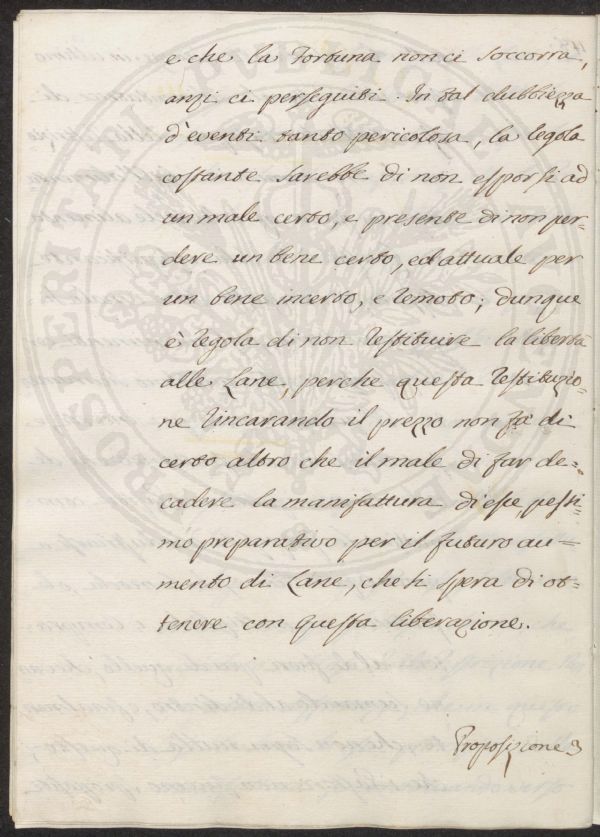 e che la Fortuna non ci soccorra,
anzi ci perseguiti. In tal dubbiezza
d'eventi tanto pericolosa, la regola
costante sarebbe di non esporsi ad
un male certo, e presente di non per=
dere un bene certo, ed attuale per
un bene incerto, e remoto; dunque
è regola di non restituire la libertà
alle Lane, perche questa restituzio=
ne rincarando il prezzo non fà di
certo altro che il male di far de=
cadere la manifattura di esse, pessi=
mo preparativo per il futuro au=
mento di Lane, che si spera di ot=
tenere con questa liberazione.
Proposizione 3
PROSPERITATI PUBLICAE AUGENDAE